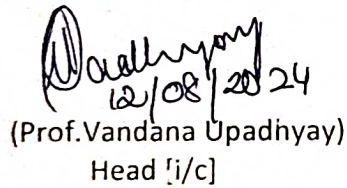 Upadhyay
12/08/2024
(Prof.Vandana Upadhyay)
Head [i/c]